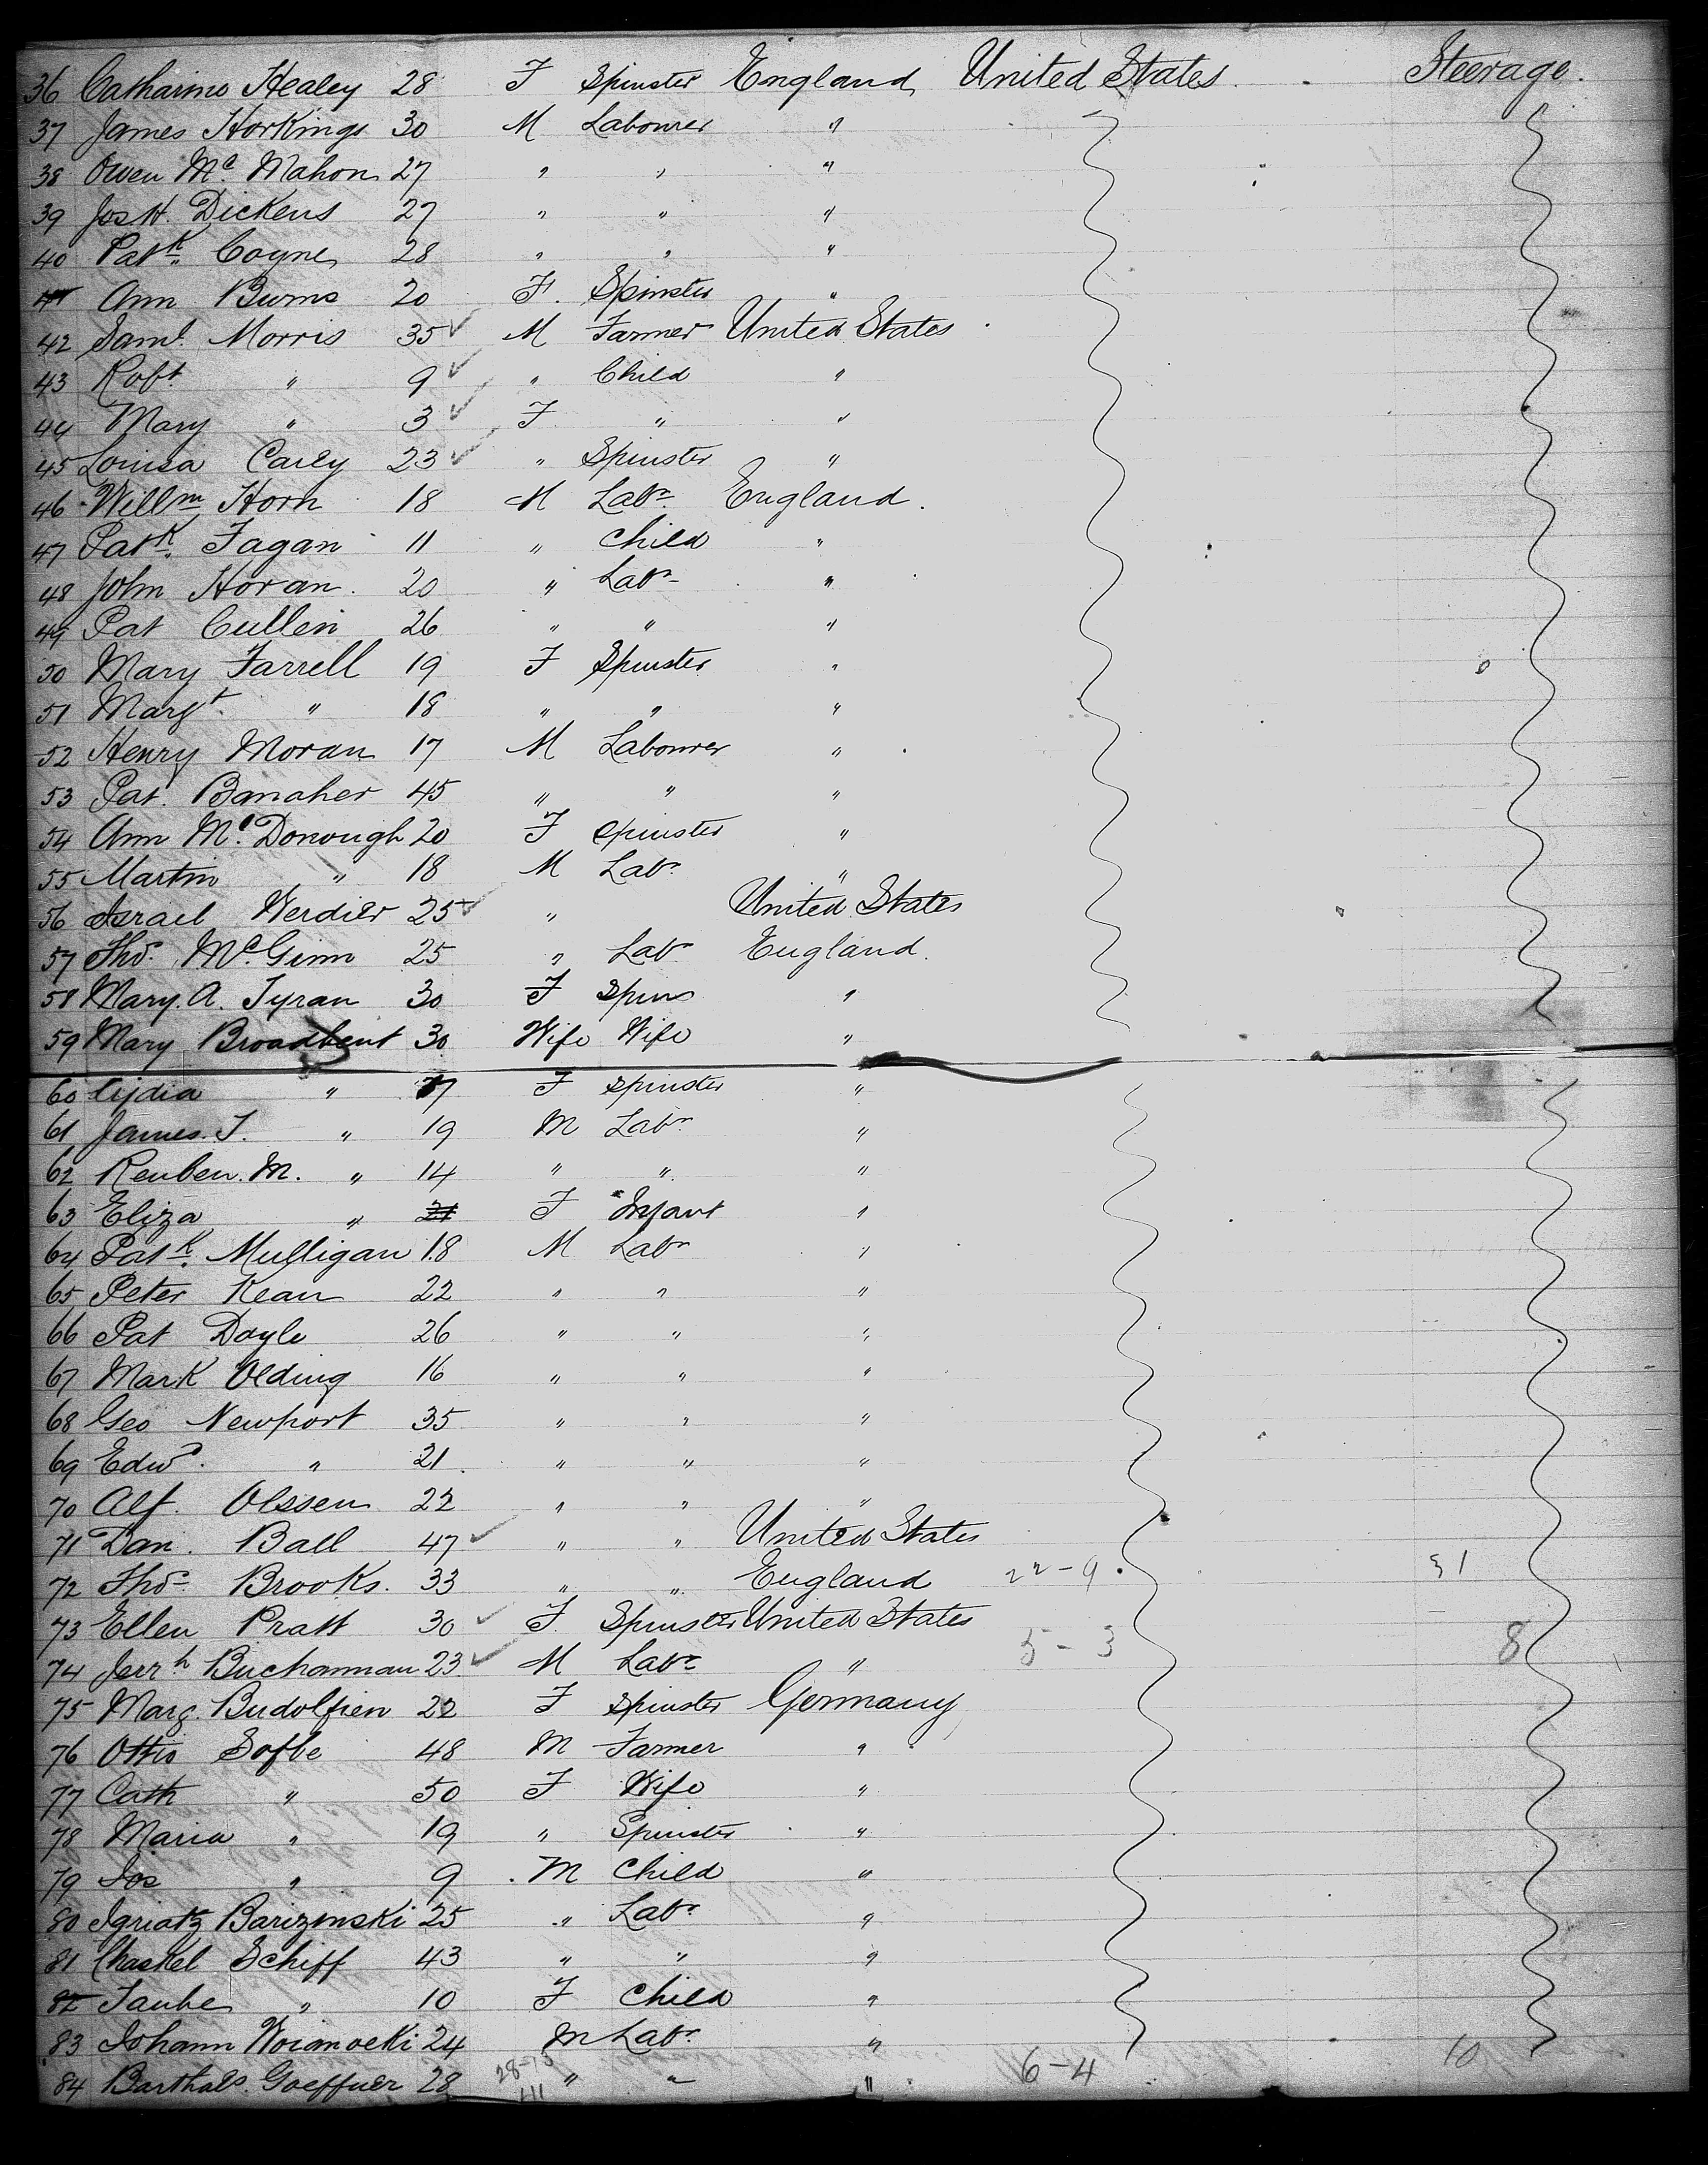 36 Catharine Healey 28 F Spinster England United States Steerage.
37 James Horkings 30 M Labourer "
38 Owen Mc Mahon 27 " " "
39 Jos H. Dickens 27 " " "
40 Patk. Coyne 28 " " "
41 Ann Burns 20 F. Spinster "
42 Saml. Morris 35 M Farmer United States
43 Robt " 9 " Child "
44 Mary " 3 F " "
45 Louisa Carey 23 " Spinster "
46 Willm Horn 18 M Labr England.
47 Patk. Fagan 11 " Child "
48 John Horan 20 " Labr "
49 Pat Cullen 26 " " "
50 Mary Farrell 19 F Spinster "
51 Margt. " 18 " " "
52 Henry Moran 17 M Labourer "
53 Pat. Banaher 45 " " "
54 Ann Mc. Donough 20 F Spinster "
55 Martin " 18 M Labr "
56 Israel Werdier 25 " United States
57 Thos. Mc. Ginn 25 " Labr England.
58 Mary. A. Tyran 30 F Spins "
59 Mary Broadbent 30 Wife Wife "
60 Lydia " 17 F Spinster "
61 James. T. " 19 M Labr "
62 Reuben. M. " 14 " " "
63 Eliza " F Infant "
64 Patk. Mulligan 18 M Labr "
65 Peter Kean 22 " " "
66 Pat Doyle 26 " " "
67 Mark Olding 16 " " "
68 Geo Newport 35 " " "
69 Edwd. " 21 " " "
70 Alf. Olssen 22 " " "
71 Dan. Ball 47 " " United States
72 Thos. Brooks. 33 " " England 22-9 31
73 Ellen Pratt 30 F. Spinster United States
74 Jerrh Buchannan 23 M Labr " 5-3 8
75 Marg. Budolfien 22 F Spinster Germany
76 Otto Sofbe 48 M Farmer "
77 Cath " 50 F Wife "
78 Maria " 19 " Spinster "
79 Jos " 9 M Child "
80 Igniatz Barizinski 25 " Labr "
81 Chaskel Schiff 43 " " "
82 Taube " 10 F Child "
83 Johann 24 M Labr "
84 Barthals. Goeffner 28 " " " 6-4 10